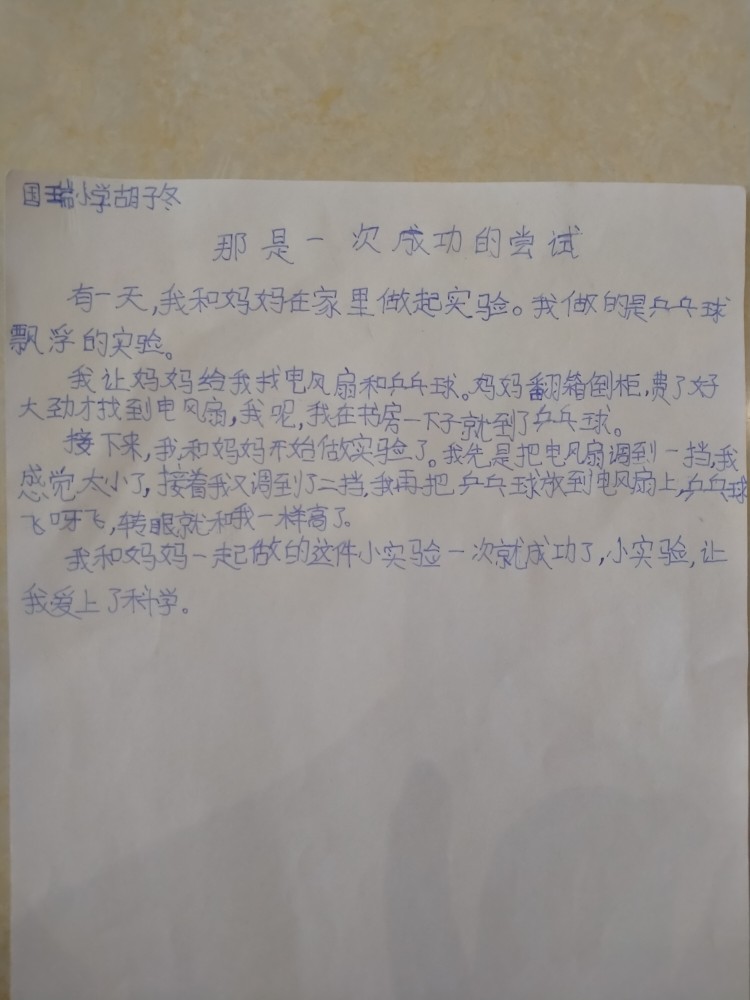 国瑞小学胡子冬
那是一次成功的尝试
有一天,我和妈妈在家里做起实验。我做的是乒乓球
飘浮的实验。
我让妈妈给我找电风扇和乒乓球。妈妈翻箱倒柜,费了好
大劲才找到电风扇,我呢,我在书房一下子就到了乒乓球。
接下来,我和妈妈开始做实验了。我先是把电风扇调到一挡,我
感觉太小了,接着我又调到了二挡,我再把乒乓球放到电风扇上,乒乓球
飞呀飞,转眼就和我一样高了。
我和妈妈一起做的这件小实验一次就成功了,小实验,让
我爱上了科学。